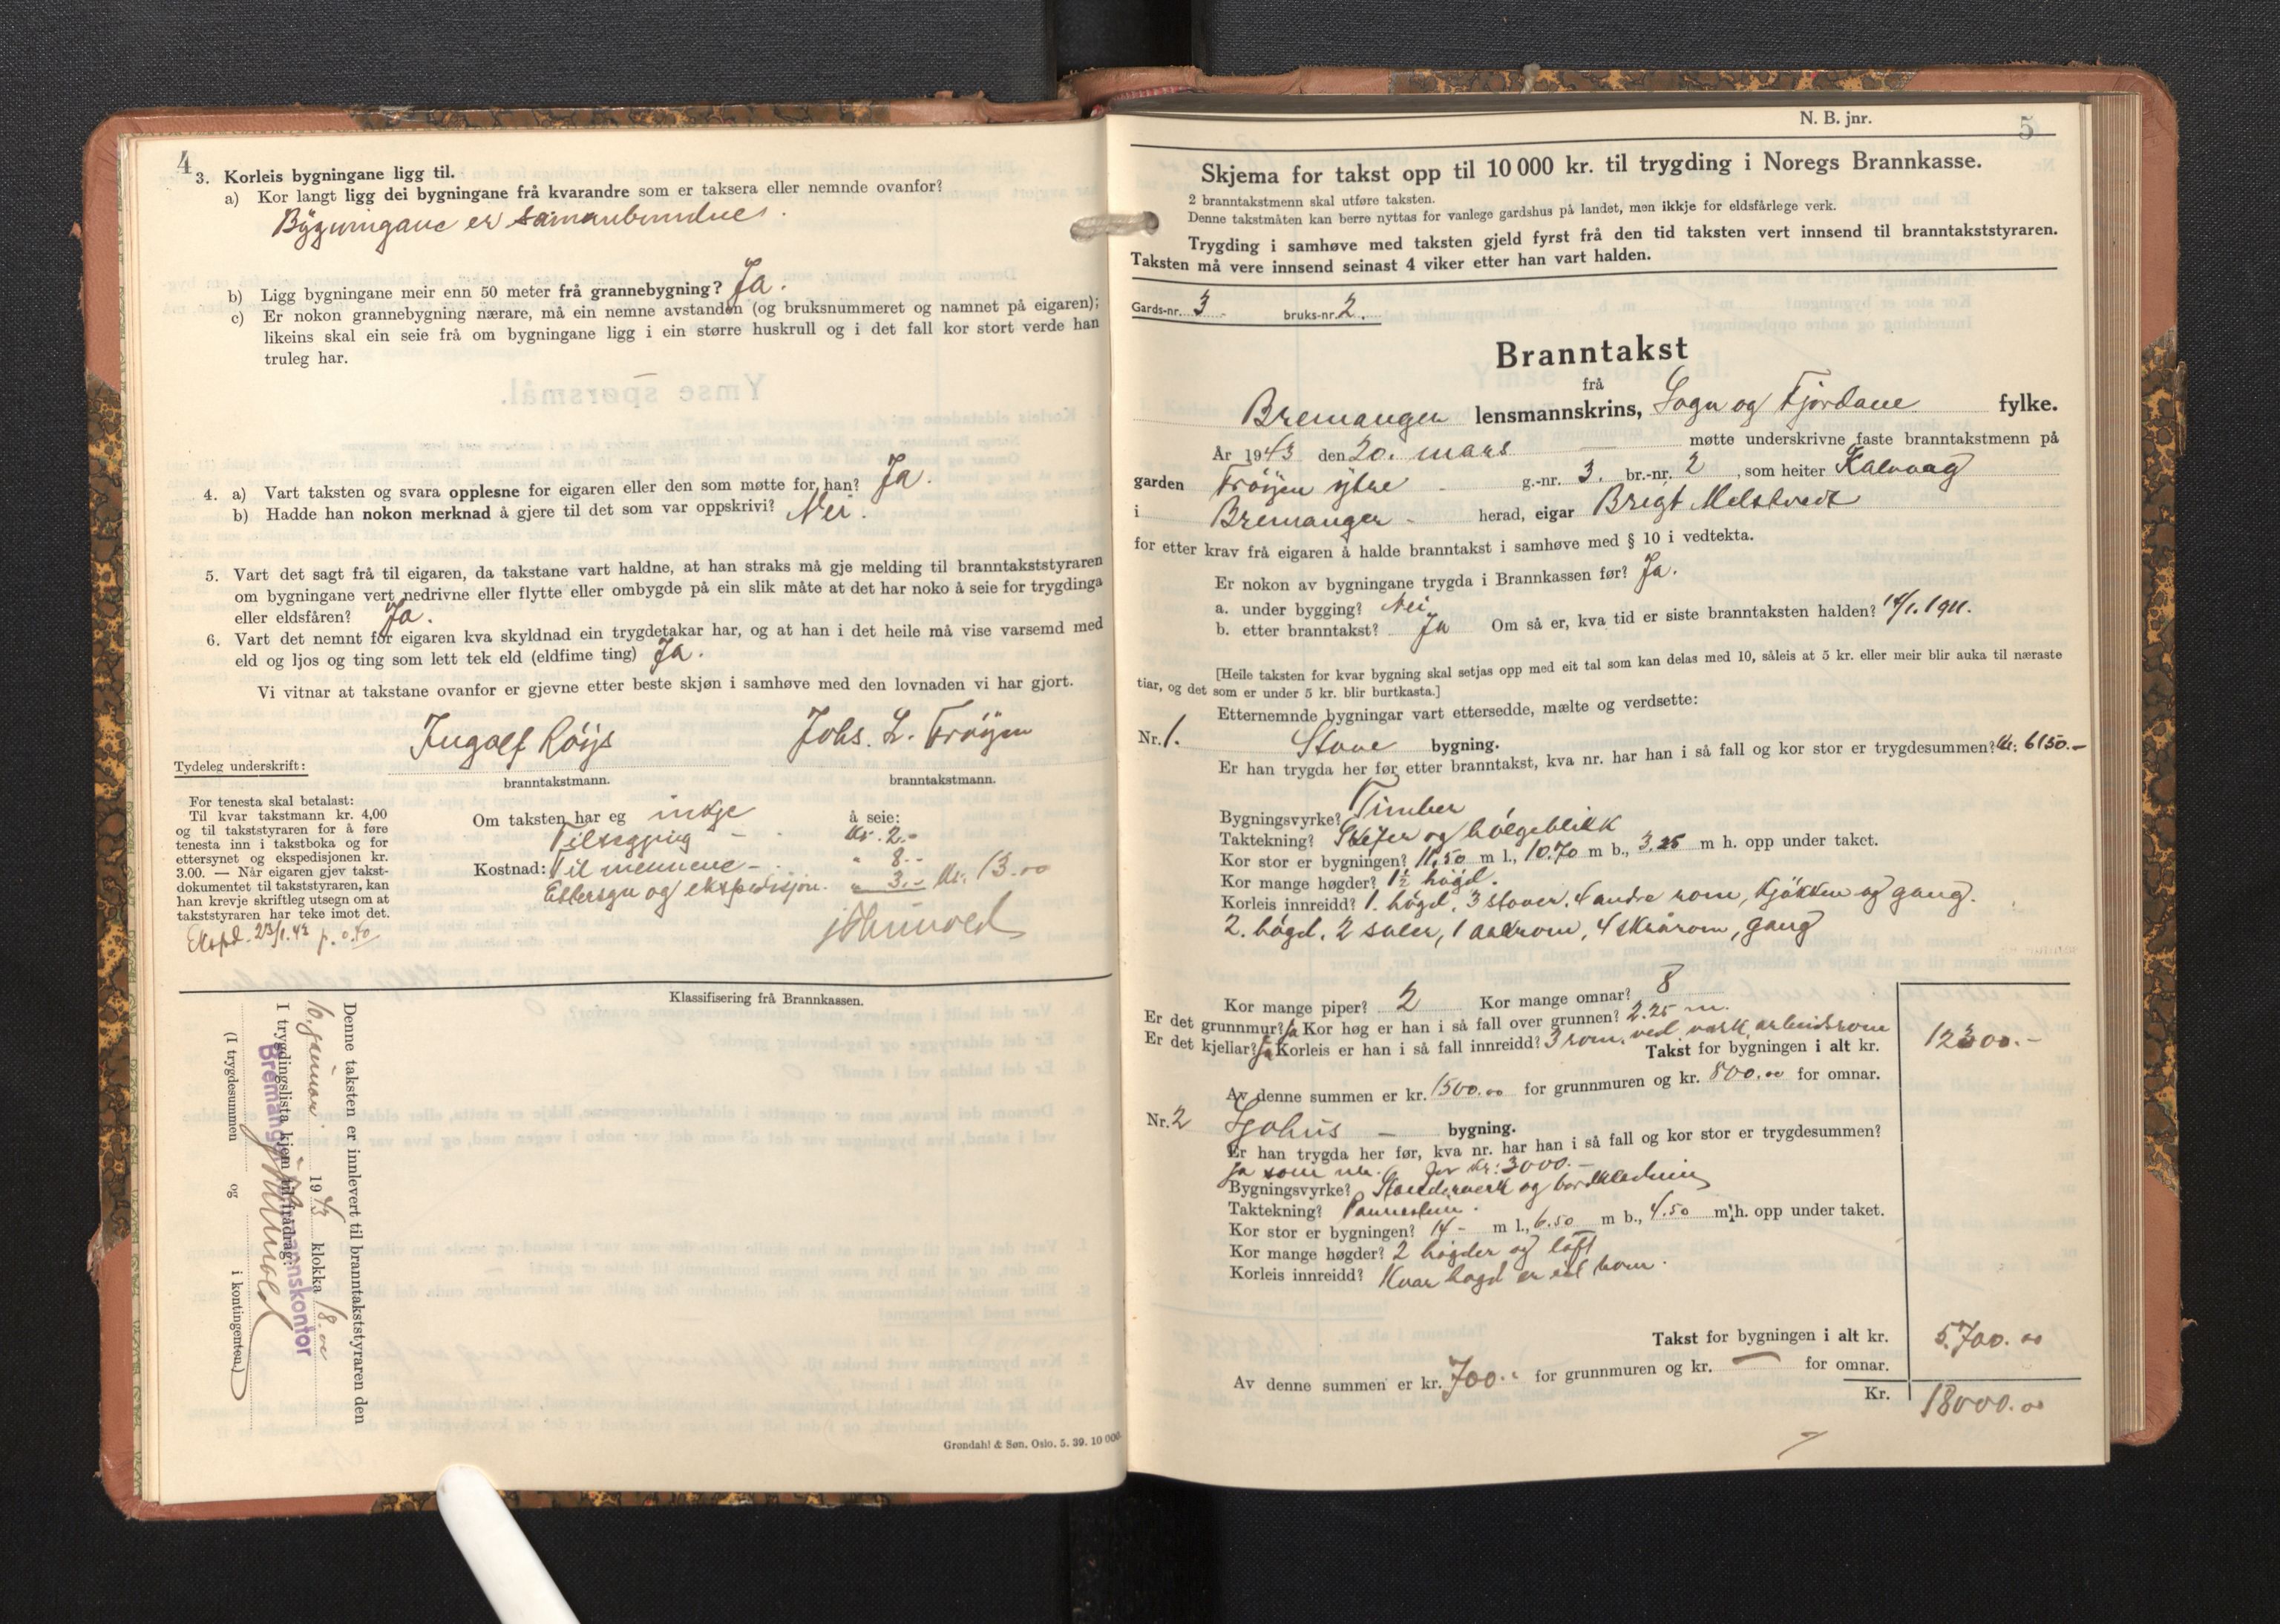 4
3. Korleis bygningane ligg til.
a) Kor langt ligg dei bygningane frå kvarandre som er taksera eller nemnde ovanfor?
Bygningane er samanbundne.
b) Ligg bygningane meir enn 50 meter frå grannebygning? Ja.
c) Er nokon grannebygning nærare, må ein nemne avstanden (og bruksnummeret og namnet på eigaren);
likeins skal ein seie frå om bygningane ligg i ein større huskrull og i det fall kor stort verde han
truleg har.
4. a) Vart taksten og svara opplesne for eigaren eller den som møtte for han? Ja.
b) Hadde han nokon merknad å gjere til det som var oppskrivi? Nei.
5. Vart det sagt frå til eigaren, da takstane vart haldne, at han straks må gje melding til branntakststyraren
om bygningane vert nedrivne eller flytte eller ombygde på ein slik måte at det har noko å seie for trygdinga
eller eldsfåren? Ja.
6. Vart det nemnt for eigaren kva skyldnad ein trygdetakar har, og at han i det heile må vise varsemd med
eld og ljos og ting som lett tek eld (eldfime ting) Ja.
Vi vitnar at takstane ovanfor er gjevne etter beste skjøn i samhøve med den lovnaden vi har gjort.
Tydeleg underskrift: Ingolf Röys Johs. L. Fröyen
branntakstmann. branntakstmann.
For tenesta skal betalast:
Til kvar takstmann kr. 4,00
og til takststyraren for å føre
tenesta inn i takstboka og for
ettersynet og ekspedisjonen kr.
3.00. — Når eigaren gjev takst-
dokumentet til takststyraren, kan
han krevje skriftleg utsegn om at
takststyraren har teke imot det.
Ekspd. 23/1.43 p. 0.40
Om taksten har eg inkje å seie:
Tilseging - kr. 2.-
Kostnad: Til mennene - " 8.-
Ettersyn og ekspedisjon. " 3.- kr. 13.00
Klassifisering frå Brannkassen.
Denne taksten er innlevert til branntakststyraren den
16. januar 1943 klokka 18.00
I trygdingslista kjem til frådrag:
(I trygdesummen og i kontingenten.)
Grøndahl & Søn, Oslo. 5. 39. 10 000.
N. B. jnr.
5
Skjema for takst opp til 10 000 kr. til trygding i Noregs Brannkasse.
2 branntakstmenn skal utføre taksten.
Denne takstmåten kan berre nyttas for vanlege gardshus på landet, men ikkje for eldsfårlege verk.
Trygding i samhøve med taksten gjeld fyrst frå den tid taksten vert innsend til branntakststyraren.
Taksten må vere innsend seinast 4 viker etter han vart halden.
Gards-nr. 3 bruks-nr. 2.
Branntakst
frå
Bremanger lensmannskrins, Sogn og Fjordane fylke.
År 1943 den 20. mars møtte underskrivne faste branntakstmenn på
garden Fröyen ytre g.-nr. 3. br.-nr. 2, som heiter Kalvaag
i Bremanger herad, eigar Brigt Melstvedt
for etter krav frå eigaren å halde branntakst i samhøve med § 10 i vedtekta.
Er nokon av bygningane trygda i Brannkassen før? Ja.
a. under bygging? Nei
b. etter branntakst? Ja Om så er, kva tid er siste branntaksten halden? 14/1.1911.
[Heile taksten for kvar bygning skal setjas opp med eit tal som kan delas med 10, såleis at 5 kr. eller meir blir auka til næraste
tiar, og det som er under 5 kr. blir burtkasta.]
Etternemnde bygningar vart ettersedde, mælte og verdsette:
Nr. 1. Stove bygning.
Er han trygda her før etter branntakst, kva nr. har han i så fall og kor stor er trygdesummen? Kr. 6150.-
Bygningsvyrke? Timber
Taktekning? Skifer og bölgeblikk
Kor stor er bygningen? 11,50 m l., 10.70 m b., 3.25 m h. opp under taket.
Kor mange høgder? 1½ högd.
Korleis innreidd? 1. högd, 3 stover, 4 andre rom, kjökken og gang.
2. högd. 2 saler, 1 rom, 4 skrårom, gang
Kor mange piper? 2 Kor mange omnar? 8
Er det grunnmur? Ja Kor høg er han i så fall over grunnen? 2.25 m.
Er det kjellar? Ja Korleis er han i så fall innreidd? 3 rom. ved vask, arbeidsrom
Takst for bygningen i alt kr. 12300.-
Av denne summen er kr. 1500.00 for grunnmuren og kr. 800.00 for omnar.
Nr. 2 Sjøhus - bygning.
Er han trygda her før, kva nr. har han i så fall og kor stor er trygdesummen?
Ja som nr. for kr: 3000.-
Bygningsvyrke? Standerverk og bordkledning
Taktekning? Pannestein.
Kor stor er bygningen? 14 - m l., 6.50 m b., 4.50 m h. opp under taket.
Kor mange høgder? 2 högder og loft
Korleis innreidd? Kvar högd er eit rom.
Takst for bygningen i alt kr. 5.700.00
Av denne summen er kr. 700.- for grunnmuren og kr. — for omnar.
Kr. 18000.00